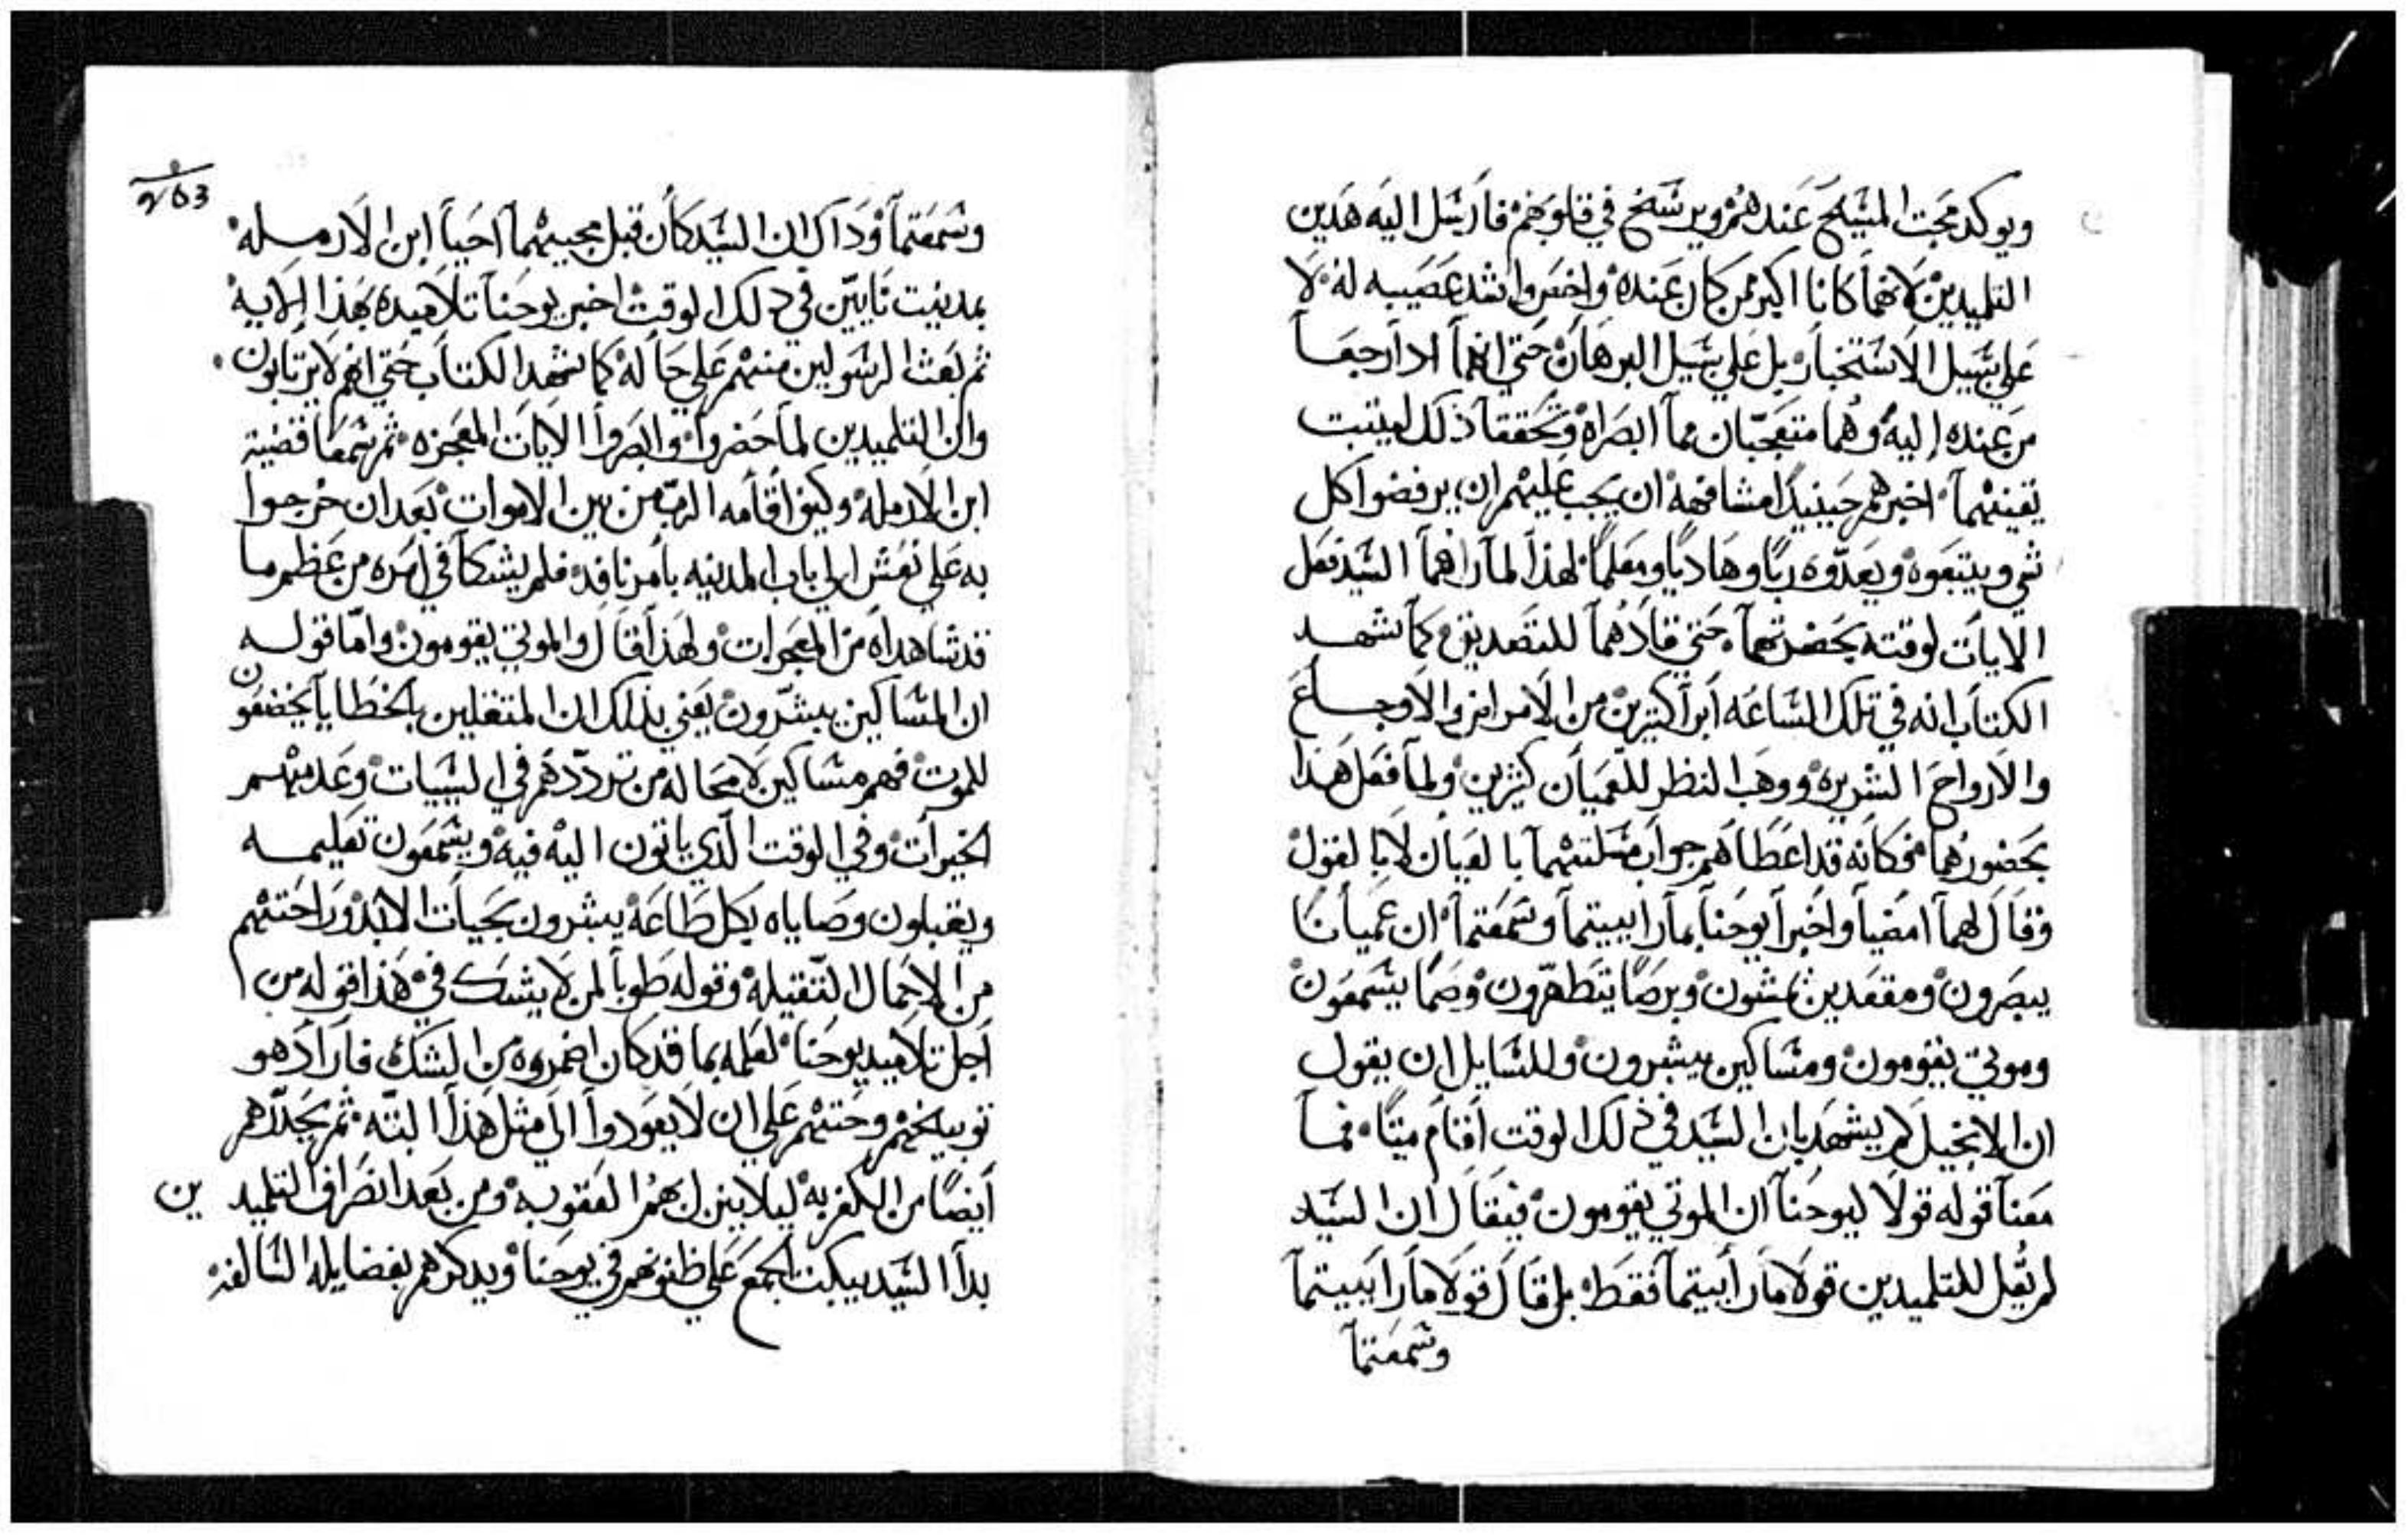 ويوكد محبت المسيح عندهم ويرسخ في قلوبهم فارسل اليه هدين
التلميدين لانهما كانا اكبر من كان عنده واخص واشد عصيبه له لا
علي سبيل الاستخبار بل علي سبيل البرهان حتي انهما ادا رجعا
من عنده إليه وهما متعجبان مما ابصراه وتحققا ذلك ليتبت
يقينهما اخبرهم حينيدا مشافهة ان يجب عليهم ان يرفضوا كل
شي ويتبعوه ويعدّوه ربًا وهاديًا ومعلمًا لهذا لما راهما السيد فعل
الايات لوقته بحضرتهما حتي قادهما للتصديق كما شهد
الكتاب انه في تلك الساعه أبرا كتيرين من الامراض والاوجاع
والارواح الشريره ووهب النظر للعميان كثيرين ولما فعل هذا
بحضورهما فكانه قد اعطاهم جواب مسلتهما بالعيان لا بالقول
وقال لهما امضيا واخبرا يوحنا بما راييتما وسمعتما ان عميانًا
يبصرون ومقعدين يمشون وبرصًا يتطهّرون وصمًا يسمعون
وموتي يقومون ومساكين يبشرون وللسايل ان يقول
ان الانجيل لم يشهد بان السيد في ذلك الوقت أقام ميتًا فما
معنا قوله قولا ليوحنا ان الموتي يقومون فيقال ان السيد
لم يقل للتلميدين قولا ما رأييتما فقط بل قال قولا ما راييتما
وسمعتما
٢٥٣
وسمعتما وداك ان السيد كان قبل مجيهما احيا ابن الارمله
بمدينت نايين في دلك الوقت اخبر يوحنا تلاميده بهذا الايه
ثم بعث الرسولين منهم علي حاله كما شهد الكتاب حتي انهم لا يرتابون
وان التلميدين لما حضروا وابصروا الايات المعجزه ثم سمعا قضية
ابن الارمله وكيف أقامه الرب من بين الاموات بعد ان خرجوا
به علي نعش الي باب المدينه بامر نافد فلم يشكا في امره من عظم ما
قد شاهداه من المعجزات ولهذا قال والموتي يقومون وامّا قوله
ان المساكين يبشّرون يعني بذلك ان المتقلين بالخطايا يخضعون
للموت فهم مساكين لا محاله من تردّدهم في السيات وعدمهم
الخيرات وفي الوقت الذي ياتون اليه فيه ويسمعون تعليمه
ويقبلون وصاياه بكل طاعه يبشرون بحيات الابد وراحتهم
من الاحمال التّقيله وقوله طوبا لمن لا يشك في هذا قوله من
أجل تلاميد يوحنا لعلمه بما قد كان اضمروه من الشك فاراد هو
توبيخهم وحتهم علي ان لا يعودوا الي مثل هذا البتّه ثم يجدّدهم
أيضًا من الكفر به ليلا ينزل بهم العقوبه ومن بعد انصراف التلميدين
بدا السيد يبكت الجمع علي ظنونهم في يوحنا ويدكرهم بفضايله السالفه